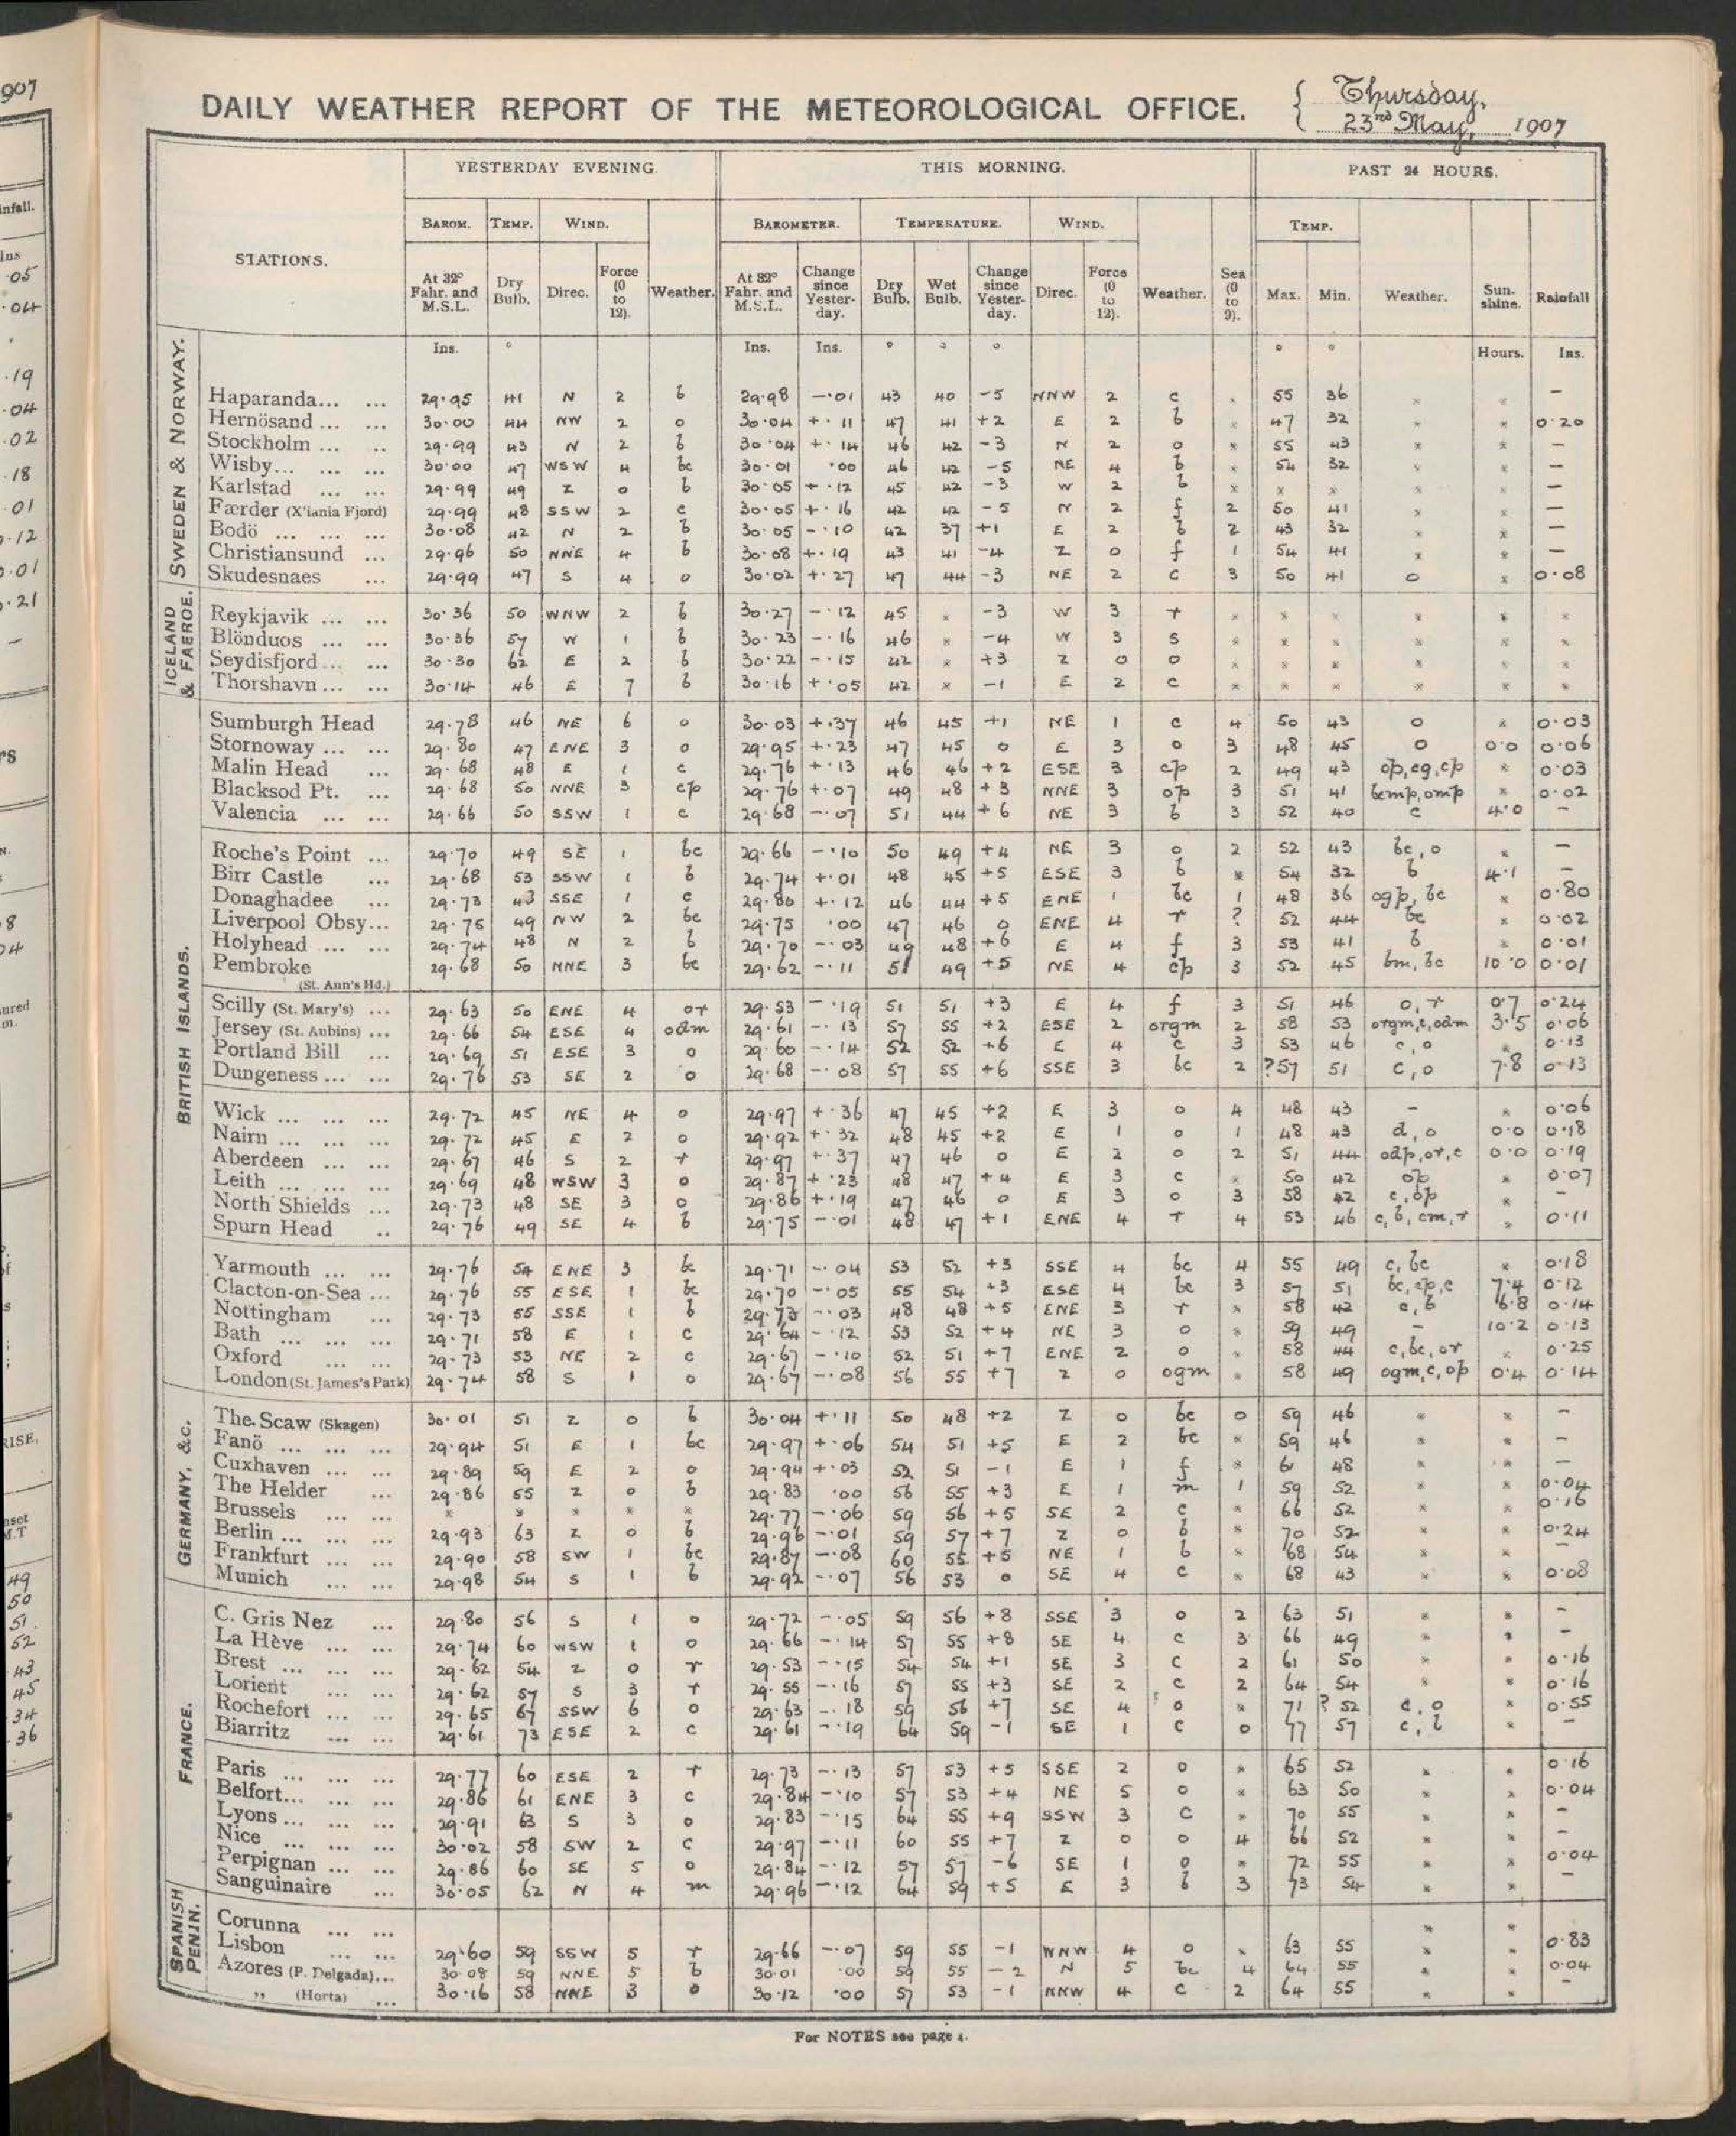 DAILY WEATHER REPORT OF THE METEOROLOGICAL OFFICE. { Thursday, 23rd May, 1907
YESTERDAY EVENING THIS MORNING. PAST 24 HOURS.
BAROM. TEMP. WIND. BAROMETER. TEMPERATURE. WIND. TEMP.
STATIONS. At 32° Fahr. and M.S.L. Dry Bulb. Direc. Force (0 to 12). Weather. At 32° Fahr. and M.S.L. Change since Yesterday. Dry Bulb. Wet Bulb. Change since Yesterday. Direc. Force (0 to 12). Weather. Sea (0 to 9). Max. Min. Weather. Sunshine. Rainfall
Ins. ° Ins. Ins. ° ° ° ° ° Hours. Ins.
SWEDEN & NORWAY.
Haparanda... ... 29.95 41 N 2 b 29.98 -.01 43 40 -5 NNW 2 c × 55 36 × × —
Hernösand ... ... 30.00 44 NW 2 o 30.04 +.11 47 41 +2 E 2 b × 47 32 × × 0.20
Stockholm ... .. 29.99 43 N 2 b 30.04 +.14 46 42 -3 N 2 o × 55 43 × × —
Wisby... ... ... 30.00 47 WSW 4 bc 30.01 .00 46 42 -5 NE 4 b × 54 32 × × —
Karlstad ... ... 29.99 49 Z 0 b 30.05 +.12 45 42 -3 W 2 b × × × × × —
Færder (X'iania Fjord) 29.99 48 SSW 2 c 30.05 +.16 42 42 -5 N 2 f 2 50 41 × × —
Bodö ... ... ... 30.08 42 N 2 b 30.05 -.10 42 37 +1 E 2 b 2 43 32 × × —
Christiansund ... 29.96 50 NNE 4 b 30.08 +.19 43 41 -4 Z 0 f 1 54 41 × × —
Skudesnaes ... 29.99 47 S 4 o 30.02 +.27 47 44 -3 NE 2 c 3 50 41 o × 0.08
ICELAND & FAEROE.
Reykjavik ... ... 30.36 50 WNW 2 b 30.27 -.12 45 × -3 W 3 r × × × × × ×
Blönduos ... ... 30.36 57 W 1 b 30.23 -.16 46 × -4 W 3 s × × × × × ×
Seydisfjord... ... 30.30 62 E 2 b 30.22 -.15 42 × +3 Z 0 o × × × × × ×
Thorshavn ... ... 30.14 46 E 7 b 30.16 +.05 42 × -1 E 2 c × × × × × ×
BRITISH ISLANDS.
Sumburgh Head 29.78 46 NE 6 o 30.03 +.37 46 45 +1 NE 1 c 4 50 43 o × 0.03
Stornoway ... ... 29.80 47 ENE 3 o 29.95 +.23 47 45 0 E 3 o 3 48 45 o 0.0 0.06
Malin Head ... 29.68 48 E 1 c 29.76 +.13 46 46 +2 ESE 3 cp 2 49 43 op, cg, cp × 0.03
Blacksod Pt. ... 29.68 50 NNE 3 cp 29.76 +.07 49 48 +3 NNE 3 op 3 51 41 bcmp, omp × 0.02
Valencia ... ... 29.66 50 SSW 1 c 29.68 -.07 51 44 +6 NE 3 b 3 52 40 c 4.0 —
Roche's Point ... 29.70 49 SE 1 bc 29.66 -.10 50 49 +4 NE 3 o 2 52 43 bc, o × —
Birr Castle ... 29.68 53 SSW 1 b 29.74 +.01 48 45 +5 ESE 3 b × 54 32 b 4.1 —
Donaghadee ... 29.73 43 SSE 1 c 29.80 +.12 46 44 +5 ENE 1 bc 1 48 36 ogp, bc × 0.80
Liverpool Obsy... 29.75 49 NW 2 bc 29.75 .00 47 46 0 ENE 4 r ? 52 44 bc × 0.02
Holyhead ... ... 29.74 48 N 2 b 29.70 -.03 49 48 +6 E 4 f 3 53 41 b × 0.01
Pembroke (St. Ann's Hd.) 29.68 50 NNE 3 bc 29.62 -.11 51 49 +5 NE 4 cp 3 52 45 bm, bc 10.0 0.01
Scilly (St. Mary's) ... 29.63 50 ENE 4 or 29.53 -.19 51 51 +3 E 4 f 3 51 46 o, r 0.7 0.24
Jersey (St. Aubins) ... 29.66 54 ESE 4 odm 29.61 -.13 57 55 +2 ESE 2 orgm 2 58 53 orgm, c, odm 3.5 0.06
Portland Bill ... 29.69 51 ESE 3 o 29.60 -.14 52 52 +6 E 4 c 3 53 46 c, o × 0.13
Dungeness ... ... 29.76 53 SE 2 o 29.68 -.08 57 55 +6 SSE 3 bc 2 ?57 51 c, o 7.8 0.13
Wick ... ... ... 29.72 45 NE 4 o 29.97 +.36 47 45 +2 E 3 o 4 48 43 — × 0.06
Nairn ... ... ... 29.72 45 E 2 o 29.92 +.32 48 45 +2 E 1 o 1 48 43 d, o 0.0 0.18
Aberdeen ... ... 29.67 46 S 2 r 29.97 +.37 47 46 0 E 2 o 2 51 44 odp, or, c 0.0 0.19
Leith ... ... ... 29.69 48 WSW 3 o 29.87 +.23 48 47 +4 E 3 c × 50 42 op × 0.07
North Shields ... 29.73 48 SE 3 o 29.86 +.19 47 46 0 E 3 o 3 58 42 c, op × —
Spurn Head .. 29.76 49 SE 4 b 29.75 -.01 48 47 +1 ENE 4 r 4 53 46 c, b, cm, r × 0.11
Yarmouth ... ... 29.76 54 ENE 3 bc 29.71 -.04 53 52 +3 SSE 4 bc 4 55 49 c, bc × 0.18
Clacton-on-Sea ... 29.76 55 ESE 1 bc 29.70 -.05 55 54 +3 ESE 4 bc 3 57 51 bc, cp, c 7.4 0.12
Nottingham ... 29.73 55 SSE 1 b 29.73 -.03 48 48 +5 ENE 3 r × 58 42 c, b 6.8 0.14
Bath ... ... ... 29.71 58 E 1 c 29.64 -.12 53 52 +4 NE 3 o × 59 49 — 10.2 0.13
Oxford ... ... 29.73 53 NE 2 c 29.67 -.10 52 51 +7 ENE 2 o × 58 44 c, bc, or × 0.25
London (St. James's Park) 29.74 58 S 1 o 29.67 -.08 56 55 +7 Z 0 ogm × 58 49 ogm, c, op 0.4 0.14
GERMANY, &c.
The Scaw (Skagen) 30.01 51 Z 0 b 30.04 +.11 50 48 +2 Z 0 bc 0 59 46 × × —
Fanö ... ... ... 29.94 51 E 1 bc 29.97 +.06 54 51 +5 E 2 bc × 59 46 × × —
Cuxhaven ... ... 29.89 59 E 2 o 29.94 +.03 52 51 -1 E 1 f × 61 48 × × —
The Helder ... 29.86 55 Z 0 b 29.83 .00 56 55 +3 E 1 m 1 59 52 × × 0.04
Brussels ... ... × × × × × 29.77 -.06 59 56 +5 SE 2 c × 66 52 × × 0.16
Berlin ... ... ... 29.93 63 Z 0 b 29.96 -.01 59 57 +7 Z 0 b × 70 52 × × 0.24
Frankfurt ... ... 29.90 58 SW 1 bc 29.87 -.08 60 55 +5 NE 1 b × 68 54 × × —
Munich ... ... 29.98 54 S 1 b 29.92 -.07 56 53 0 SE 4 c × 68 43 × × 0.08
FRANCE.
C. Gris Nez ... 29.80 56 S 1 o 29.72 -.05 59 56 +8 SSE 3 o 2 63 51 × × —
La Hève ... ... 29.74 60 WSW 1 o 29.66 -.14 57 55 +8 SE 4 c 3 66 49 × × —
Brest ... ... ... 29.62 54 Z 0 r 29.53 -.15 54 54 +1 SE 3 c 2 61 50 × × 0.16
Lorient ... ... 29.62 57 S 3 r 29.55 -.16 57 55 +3 SE 2 c 2 64 54 × × 0.16
Rochefort ... ... 29.65 67 SSW 6 o 29.63 -.18 59 56 +7 SE 4 o × 71 ?52 c, o × 0.55
Biarritz ... ... 29.61 73 ESE 2 c 29.61 -.19 64 59 -1 SE 1 c 0 77 57 c, l × —
Paris ... ... ... 29.77 60 ESE 2 r 29.73 -.13 57 53 +5 SSE 2 o × 65 52 × × 0.16
Belfort... ... ... 29.86 61 ENE 3 c 29.84 -.10 57 53 +4 NE 5 o × 63 50 × × 0.04
Lyons ... ... ... 29.91 63 S 3 o 29.83 -.15 64 55 +9 SSW 3 c × 70 55 × × —
Nice ... ... ... 30.02 58 SW 2 c 29.97 -.11 60 55 +7 Z 0 o 4 66 52 × × —
Perpignan ... ... 29.86 60 SE 5 o 29.84 -.12 57 57 -6 SE 1 o × 72 55 × × 0.04
Sanguinaire ... 30.05 62 N 4 m 29.96 -.12 64 59 +5 E 3 b 3 73 54 × × —
SPANISH PENIN.
Corunna ... ... × ×
Lisbon ... ... 29.60 59 SSW 5 r 29.66 -.07 59 55 -1 WNW 4 o × 63 55 × × 0.83
Azores (P. Delgada)... 30.08 59 NNE 5 b 30.01 .00 59 55 -2 N 5 bc 4 64 55 × × 0.04
,, (Horta) ... 30.16 58 NNE 3 o 30.12 .00 57 53 -1 NNW 4 c 2 64 55 × × —
For NOTES see page 4.